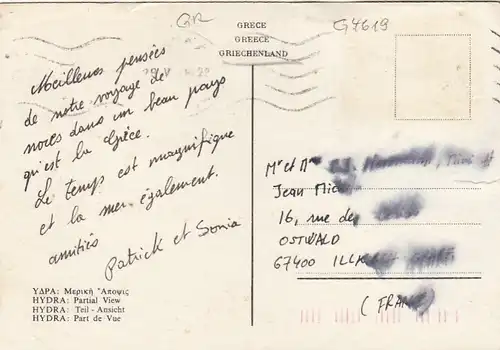 GR
G7619
GRECE
GREECE
GRIECHENLAND
Meilleures pensées
de notre voyage de
noces dans un beau pays
qu'est la Grèce.
Le temps est magnifique
et la mer également.
amitiés
Patrick et Sonia
ΥΔΡΑ: Μερική Ἄποψις
HYDRA: Partial View
HYDRA: Teil - Ansicht
HYDRA: Part de Vue
Mr et Mme
Jean
16, rue de
OSTWALD
67400
(FRANCE)